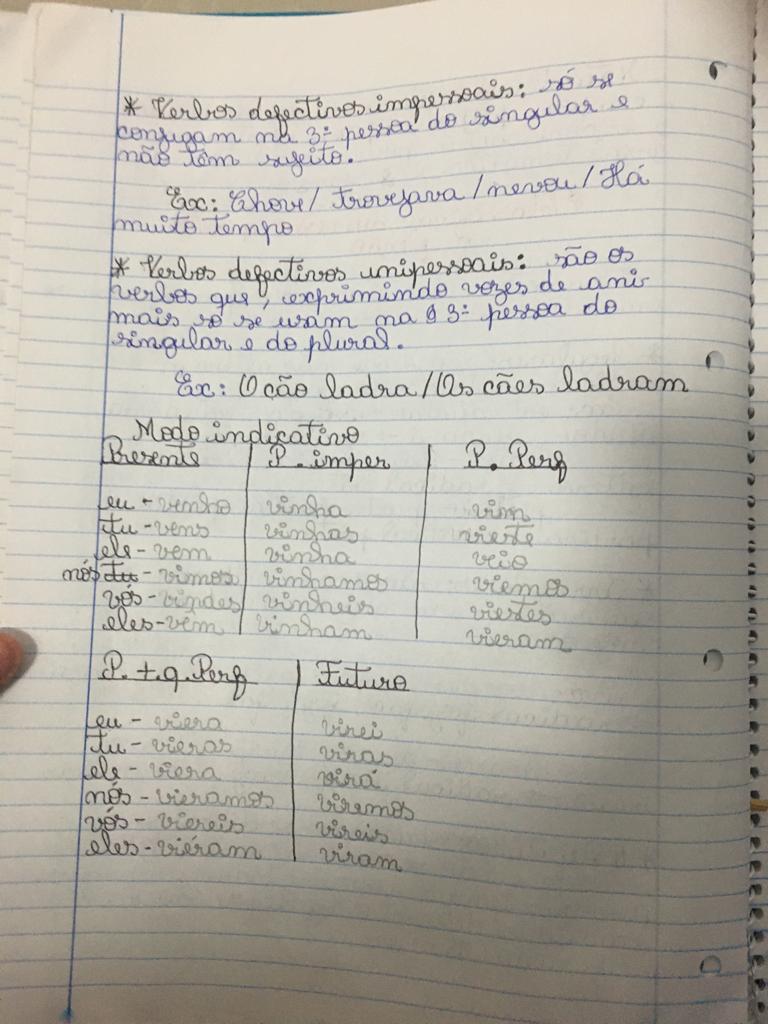 * Verbos defectivos impessoais: só se
conjugam na 3ª pessoa do singular e
não têm sujeito.
Ex: Chove / trovejava / nevou / Há
muito tempo
* Verbos defectivos unipessoais: são os
verbos que, exprimindo vozes de ani-
mais só se usam na 3ª pessoa do
singular e do plural.
Ex: O cão ladra / Os cães ladram
Modo indicativo
Presente | P. imper | P. Perf
eu - venho | vinha | vim
tu - vens | vinhas | vieste
ele - vem | vinha | veio
nós tu - vimos | vinhamos | viemos
vós - vindes | vinheis | viestes
eles - vêm | vinham | vieram
P. + q. Perf | Futuro
eu - viera | virei
tu - vieras | viras
ele - viera | virá
nós - vieramos | viremos
vós - viereis | vireis
eles - viéram | viram